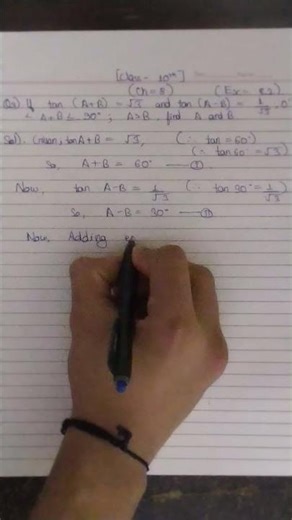 [Class - 10th]
(Ch = 8) (Ex = 8.2)
Q3) If tan (A+B) = √3 and tan (A-B) = 1/√3 ; 0°
< A+B ≤ 90° ; A>B, find A and B
Sol). Given, tan A+B = √3, (∵ tan = 60°)
(∵ tan 60° = √3)
So, A+B = 60° — ①
Now, tan A-B = 1/√3 (∵ tan 30° = 1/√3)
So, A-B = 30° — ②
Now, Adding